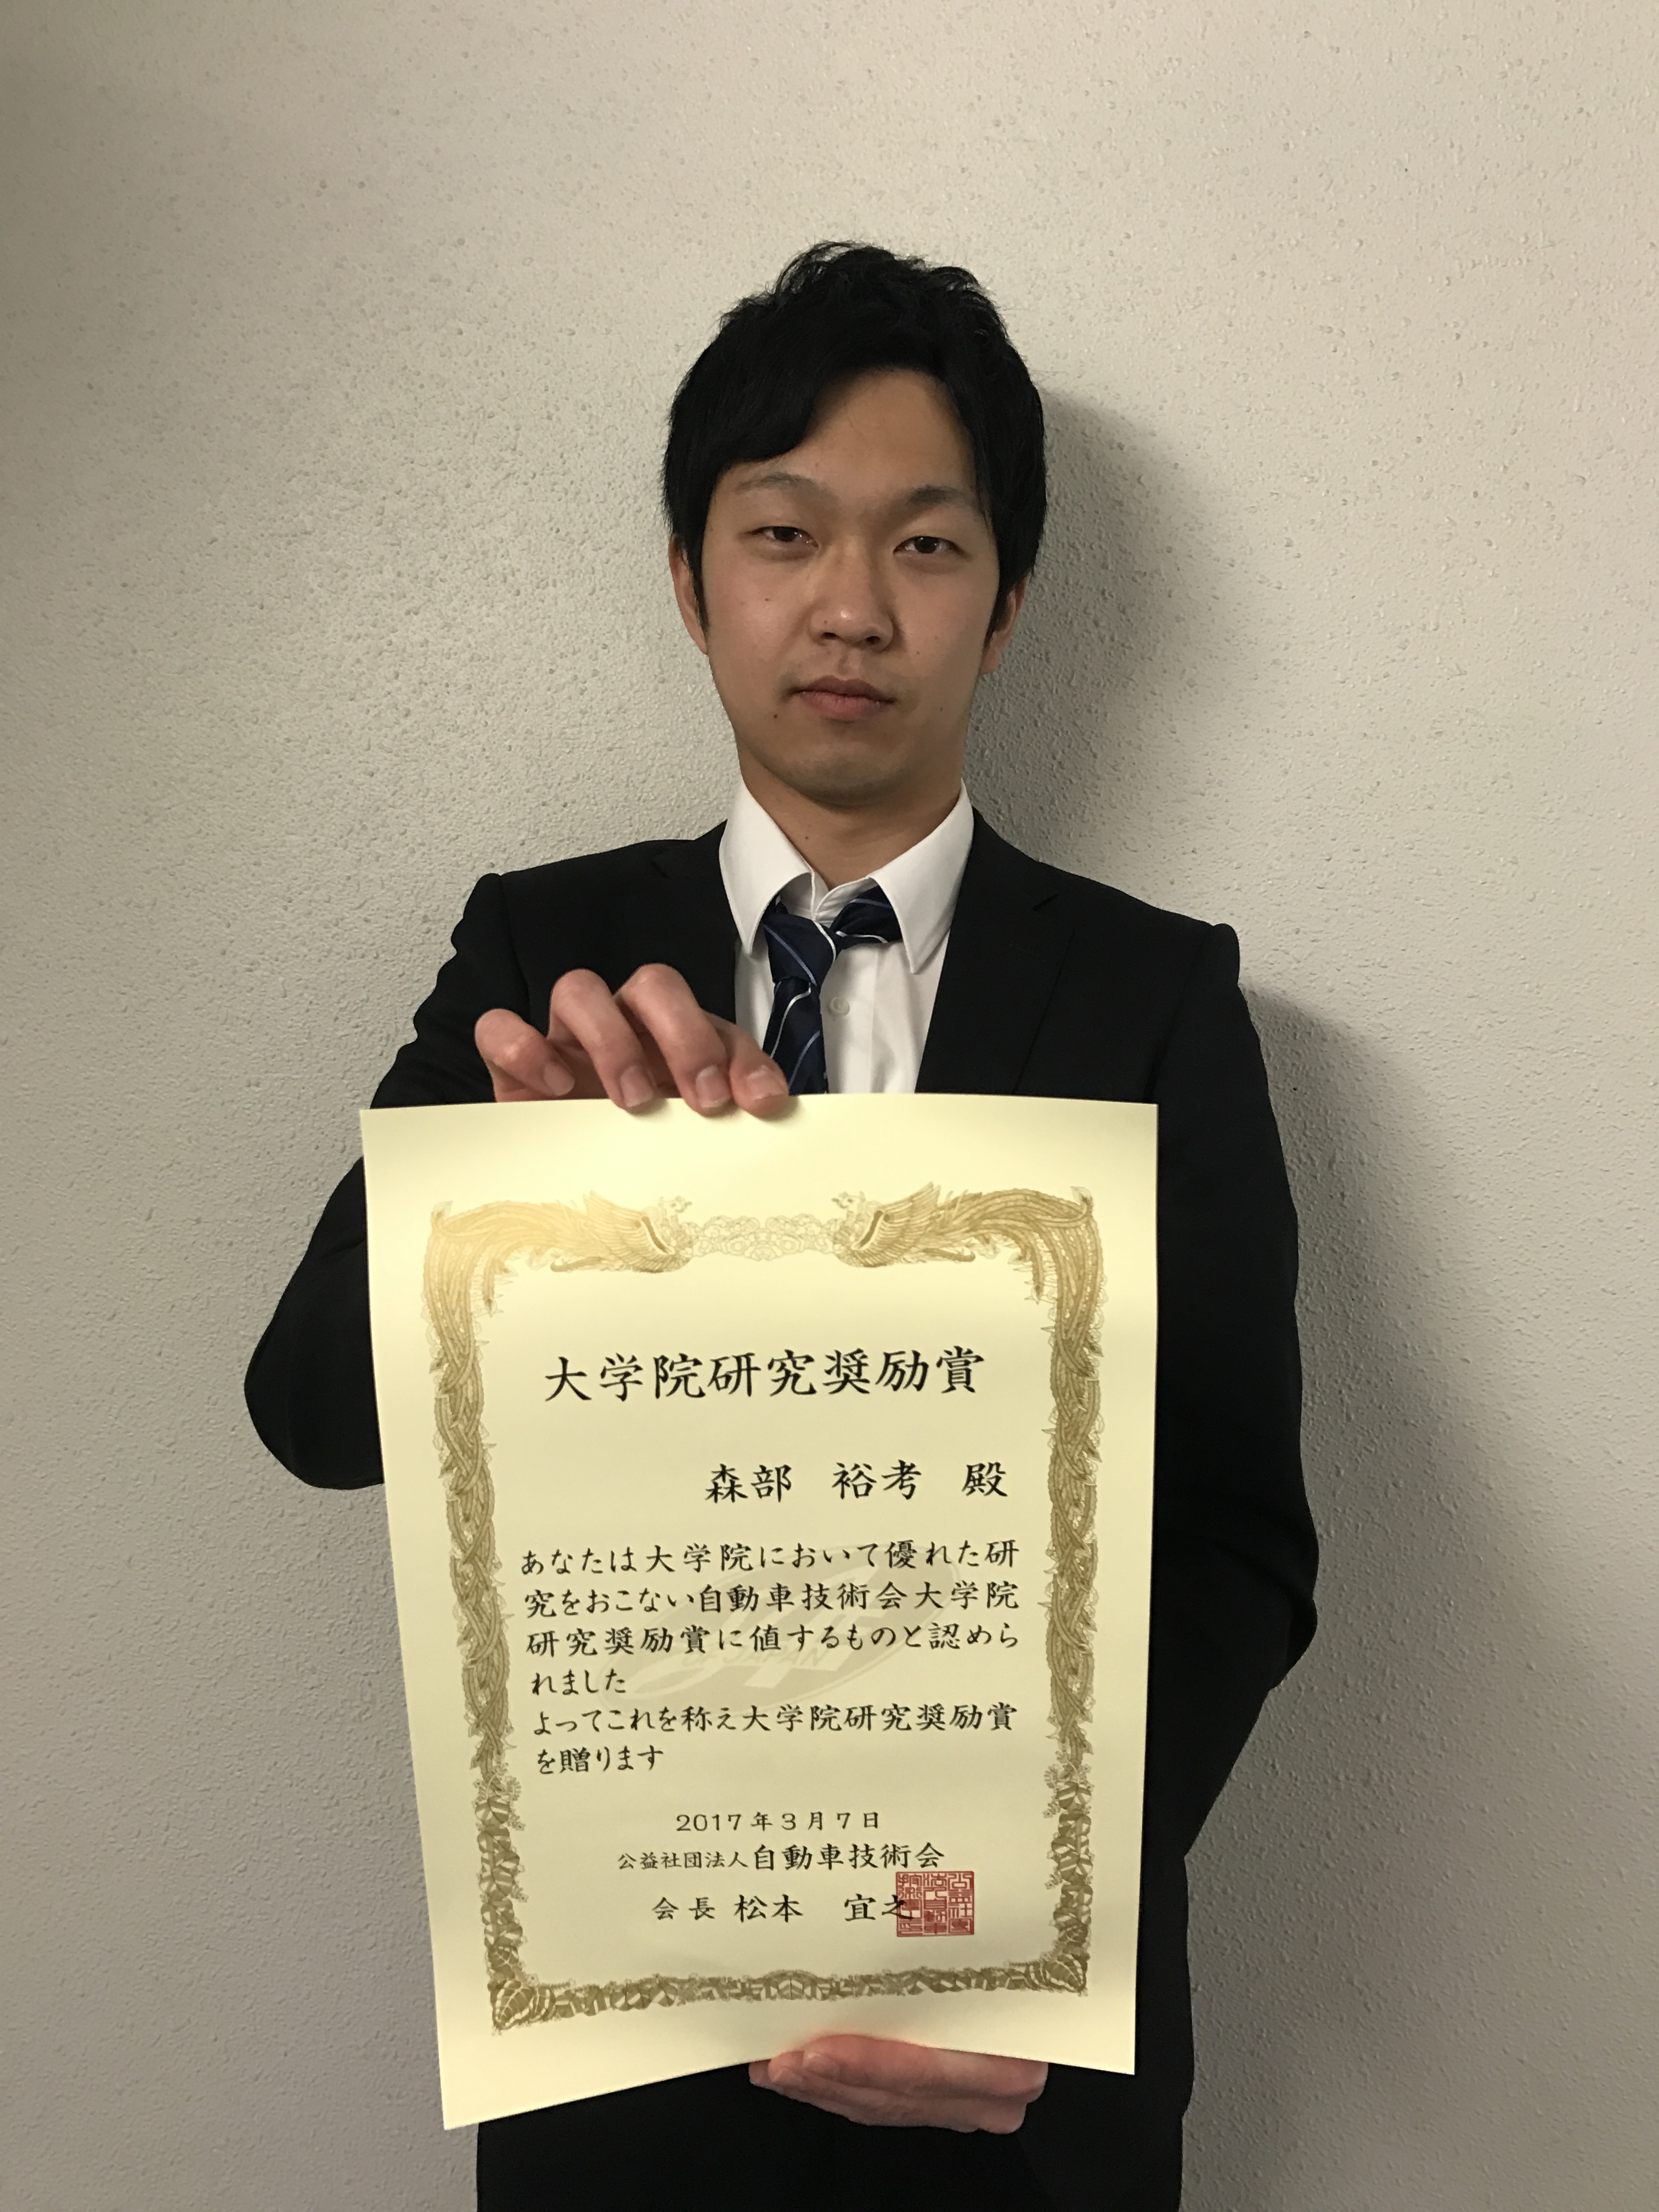 大学院研究奨励賞
森部 裕考 殿
あなたは大学院において優れた研
究をおこない自動車技術会大学院
研究奨励賞に値するものと認めら
れました
よってこれを称え大学院研究奨励賞
を贈ります
2017年3月7日
公益社団法人自動車技術会
会長 松本 宜之